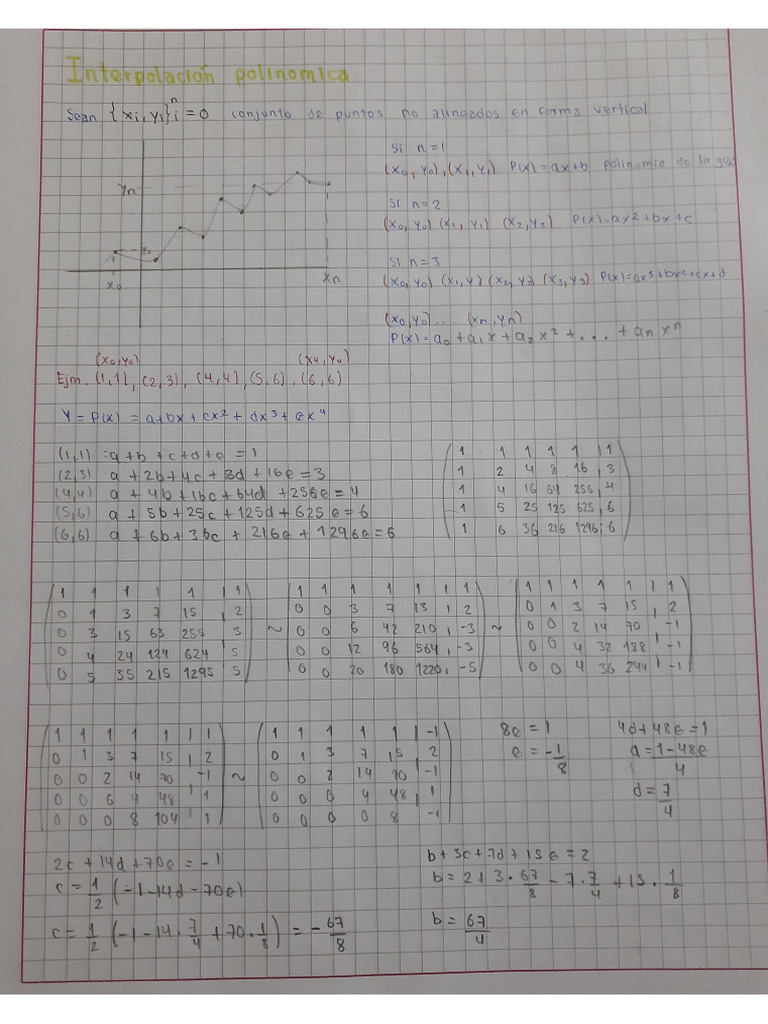 Interpolación polinomica
Sean {xi, yi}ⁿi=0 conjunto de puntos no alineados en forma vertical
Si n=1
(x₀, y₀), (x₁, y₁) P(x)=ax+b polinomio de
Si n=2
(x₀, y₀) (x₁, y₁) (x₂, y₂) P(x)=ax²+bx+c
Si n=3
(x₀, y₀) (x₁, y) (x₂, y₂) (x₃, y₃) P(x)=ax³+bx²+cx+d
(x₀, y₀) .... (xn, yn)
P(x)=a₀+a₁x+a₂x²+...+anxⁿ
Yn
x₀
xn
(x₀, y₀) (x₄, y₄)
Ejm. (1,1), (2,3), (4,4), (5,6), (6,6)
Y = P(x) = a+bx+cx²+dx³+ex⁴
(1,1) =a+b+c+d+e=1
(2,3) a+2b+4c+8d+16e=3
(4,4) a+4b+16c+64d+256e=4
(5,6) a+5b+25c+125d+625e=6
(6,6) a+6b+36c+216e+1296e=6
1 1 1 1 1 | 1
1 2 4 8 16 , 3
1 4 16 64 256 , 4
1 5 25 125 625 , 6
1 6 36 216 1296 , 6
1 1 1 1 1 | 1
0 1 3 7 15 , 2
0 3 15 63 255 , 3
0 4 24 124 624 ' 5
0 5 35 215 1295 ' 5
~
1 1 1 1 1 , 1
0 0 3 7 15 , 2
0 0 6 42 210 , -3
0 0 12 96 564 , -3
0 0 20 180 1220 , -5
~
1 1 1 1 1 | 1
0 1 3 7 15 , 2
0 0 2 14 70 ' -1
0 0 4 32 188 ' -1
0 0 4 36 244 ' -1
1 1 1 1 1 | 1
0 1 3 7 15 , 2
0 0 2 14 70 -1
0 0 6 4 48 ' 1
0 0 0 8 104 ' 1
~
1 1 1 1 1 | -1
0 1 3 7 15 2
0 0 2 14 70 | -1
0 0 0 4 48 , 1
0 0 0 0 8 -1
8e=1
e=-1/8
4d+48e=1
a=1-48e/4
d=7/4
2c+14d+70e=-1
c=1/2(-1-14d-70e)
c=1/2(-1-14·7/4+70·1/8)=-67/8
b+3c+7d+15e=2
b=2+3·67/8-7·7/4+15·1/8
b=67/4